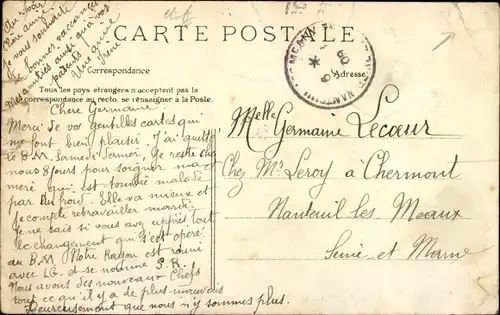 CARTE POSTALE
Correspondance
Adresse
Tous les pays étrangers n'acceptent pas la
correspondance au recto, se renseigner à la Poste.
Au revoir
Chère amie
Je vous souhaite
de bonnes vacances
Mes amitiés ainsi qu'à vos
parents
Une amie
Chère Germaine
Merci de vos gentilles cartes qui
me font bien plaisir. J'ai quitté
le B.M. Samedi dernier. Je reste chez
nous 8 jours pour soigner ma
mère qui est tombée malade
par du froid. Elle va mieux et
je compte retravailler mardi.
Je ne sais si vous avez appris tout
le changement qui s'est opéré
au B.M. Notre Rayon est réuni
avec L.G. et se nomme S.R.
Nous avons des nouveaux Chefs
tout ce qu'il y a de plus mauvais
Heureusement que nous n'y sommes plus.
Melle Germaine Lecœur
Chez Mr Leroy à Chermont
Nanteuil les Meaux
Seine et Marne